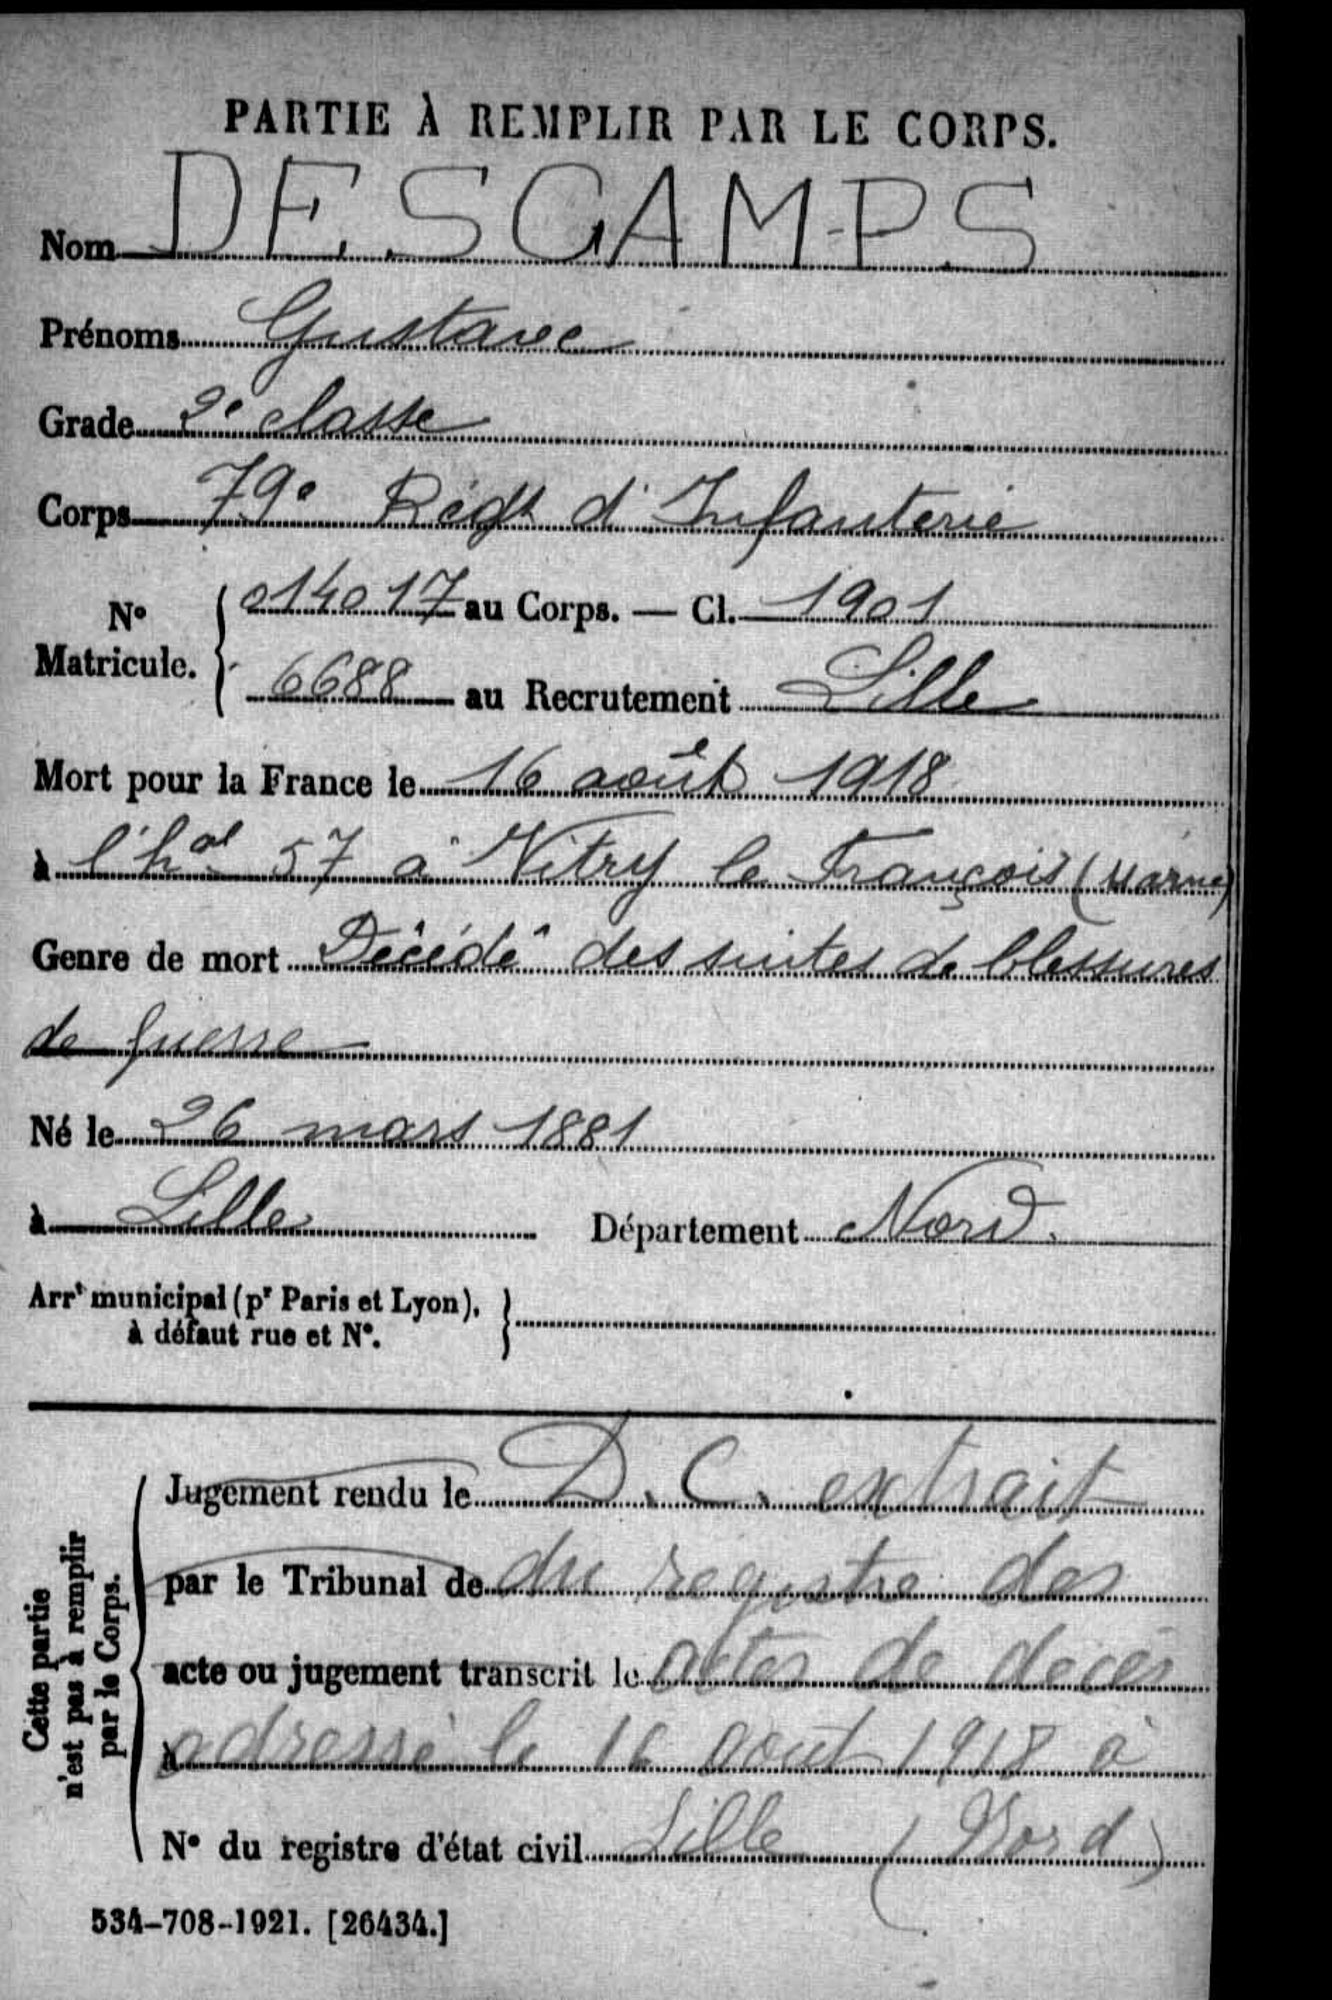 PARTIE À REMPLIR PAR LE CORPS.
Nom DESCAMPS
Prénoms Gustave
Grade 2e classe
Corps 79e Régt d'Infanterie
N° Matricule. { 014017 au Corps. — Cl. 1901
6688 au Recrutement Lille
Mort pour la France le 16 août 1918
à l'hal 57 à Vitry le François (Marne)
Genre de mort Décédé des suites de blessures
de guerre
Né le 26 mars 1881
à Lille Département Nord.
Arrt municipal (pr Paris et Lyon),
à défaut rue et N°. }
Cette partie
n'est pas à remplir
par le Corps.
Jugement rendu le D. C. extrait
par le Tribunal de du registre des
acte ou jugement transcrit le actes de décès
à adressé le 16 août 1918 à
N° du registre d'état civil Lille (Nord)
534-708-1921. [26434.]